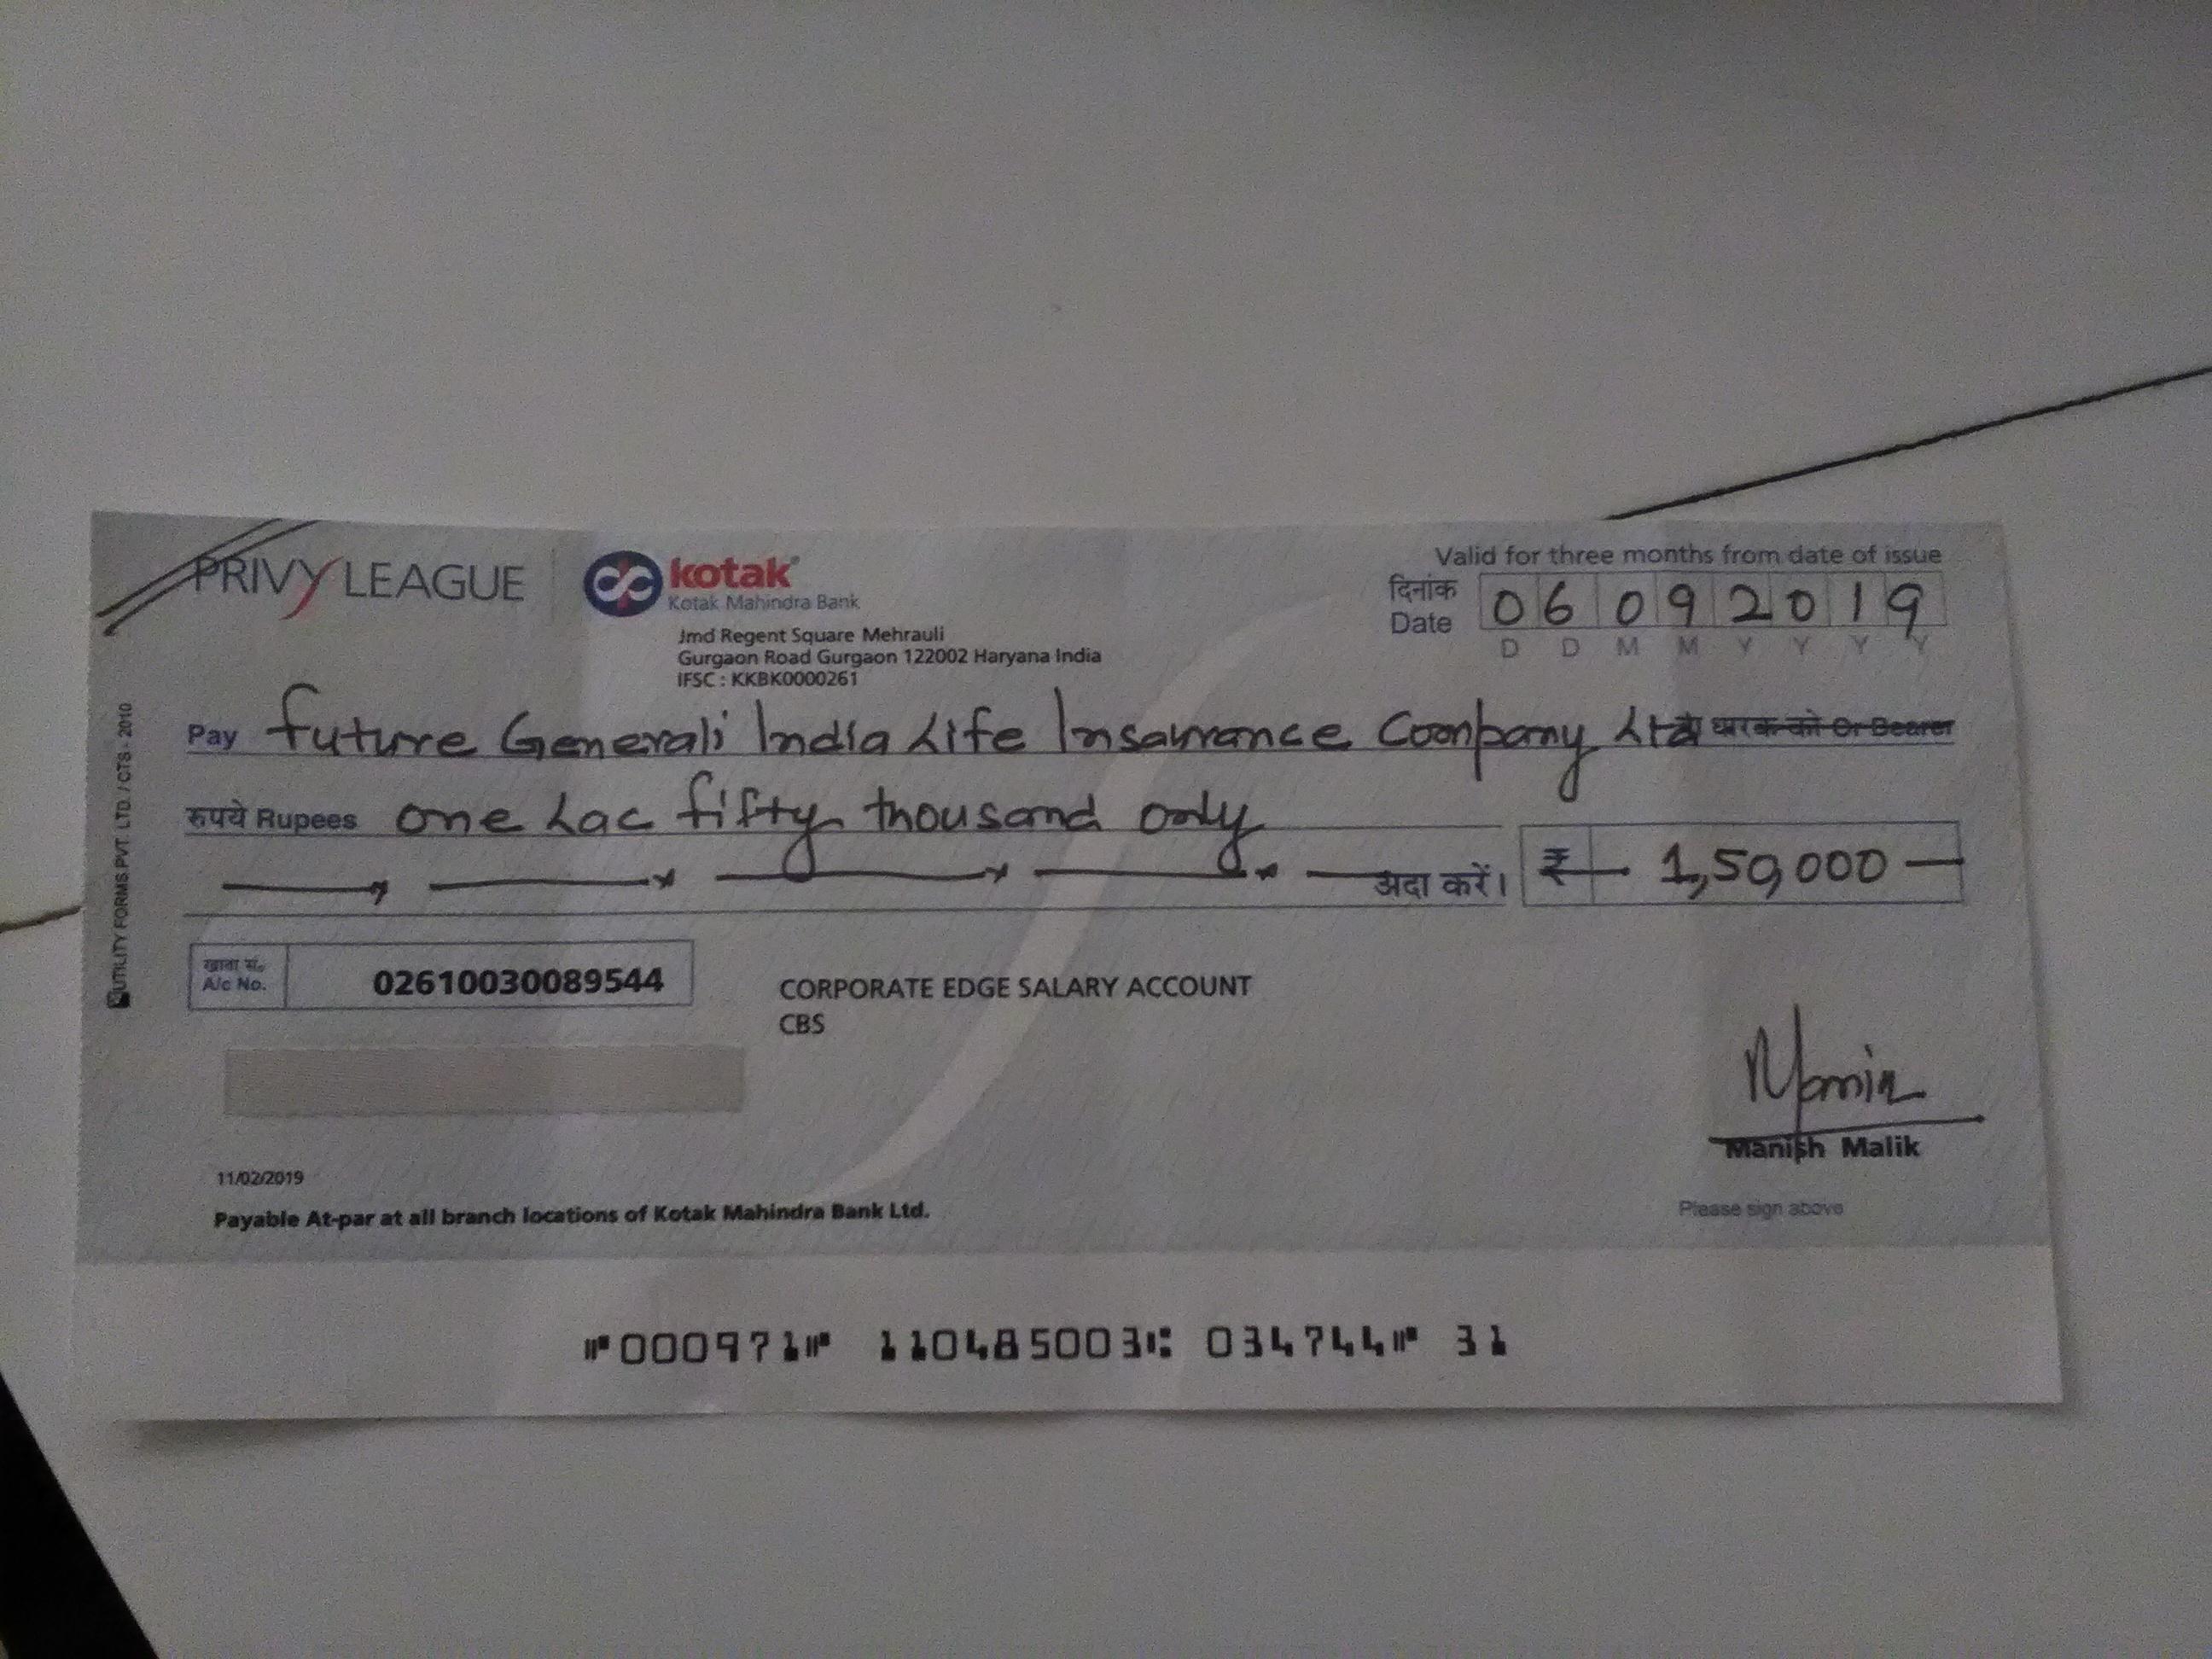 PRIVY LEAGUE
kotak
Kotak Mahindra Bank
Jmd Regent Square Mehrauli
Gurgaon Road Gurgaon 122002 Haryana India
IFSC : KKBK0000261
Valid for three months from date of issue
दिनांक
Date 0 6 0 9 2 0 1 9
D D M M Y Y Y Y
Pay Future Generali India Life Insaurance Coonpany Ltd या धारक को Or Bearer
रुपये Rupees one Lac fifty thousand only
अदा करें। ₹ 1,50,000
खाता सं.
A/c No. 02610030089544
CORPORATE EDGE SALARY ACCOUNT
CBS
Manish Malik
Please sign above
11/02/2019
Payable At-par at all branch locations of Kotak Mahindra Bank Ltd.
⑈000971⑈ 110485003⑆ 034744⑈ 31
UTILITY FORMS PVT. LTD. / CTS - 2010